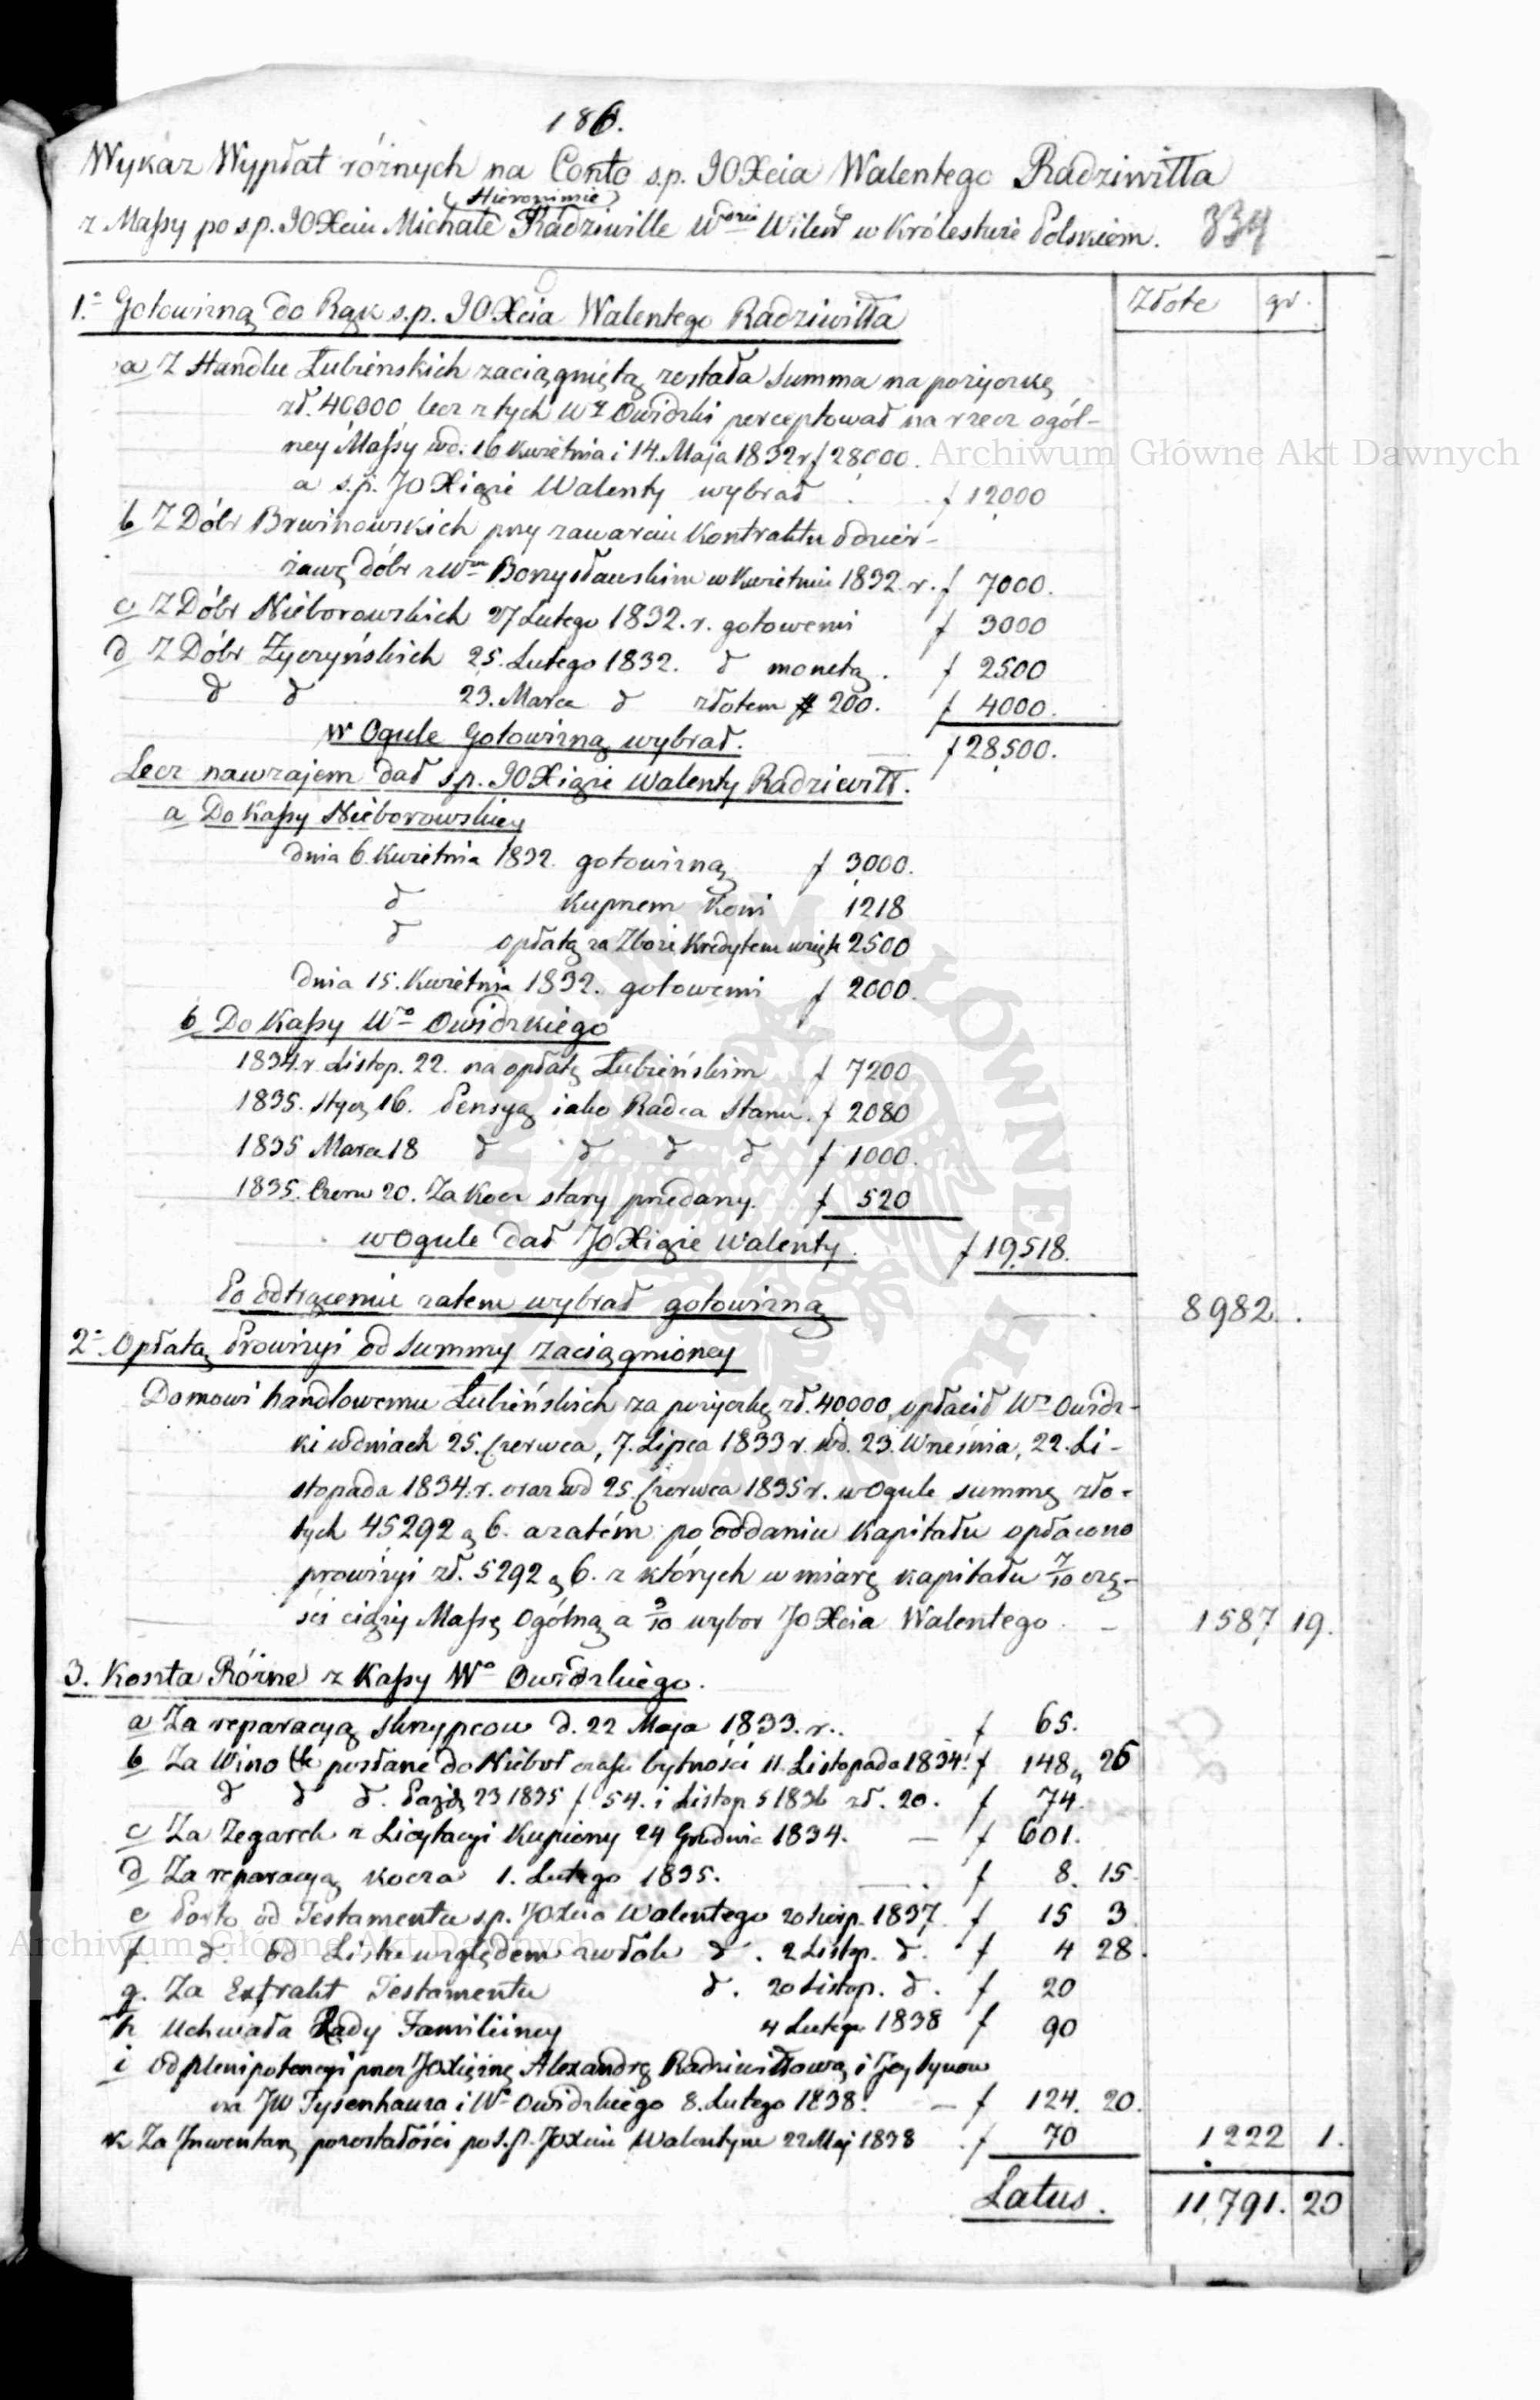 186.
Wykaz Wypłat różnych na Conto s.p. JOXcia Walentego Radziwiłła
(Hieronimie)
z Massy po s.p. JOXciu Michale Radziwille Wdzie Wileń w Królestwie Polskiem. 334
Złote gr.
1.o Gotowizną do Rąk s.p. JOXcia Walentego Radziwiłła
a Z Handlu Łubieńskich zaciągniętą została Summa na pożyczkę
zł. 40000 lecz z tych Wy Owidzki perceptował na rzecz ogól-
ney Massy wd. 16 Kwietnia i 14. Maja 1832 r f 28000.
a s.p. JOXiąże Walenty wybrał . . f 12000
b Z Dóbr Brwinowskich przy zawarciu Kontraktu o dzier-
żawę dóbr z Wm Borzysławskim w Kwietniu 1832. r. f 7000.
c Z Dóbr Nieborowskich 27 Lutego 1832. r. gotowemi f 3000
d Z Dóbr Życzyńskich 25. Lutego 1832. d monetą. f 2500
d d 23. Marca d złotem # 200. f 4000.
w Ogule Gotowizną wybrał. — f 28,500.
Lecz nawzajem dał s.p. JOXiąże Walenty Radziwiłł.
a Do Kassy Nieborowskiey
Dnia 6. Kwietnia 1832. gotowizną f 3000.
d Kupnem Koni 1218
d opłatą za Zboże Kredytem wzięte 2500
Dnia 15. Kwietnia 1832. gotowemi f 2000.
b Do Kassy Wo Owidzkiego
1834. r. Listop. 22. na opłatę Łubieńskim f 7200
1835. Stycz 16. Pensyą iako Radca Stanu. f 2080
1835 Marca 18 d d d d f 1000.
1835. Czerw 20. Za Kocz stary przedany. f 520
w Ogule dał JOXiąże Walenty. f 19,518.
Po odtrąceniu zatem wybrał gotowizną — . 8982. .
2o. Opłatą Prowizyi od Summy zaciągnioney
Domowi handlowemu Łubieńskich za pożyczkę zł. 40000 opłacił Wy Owidz-
ki w dniach 25. Czerwca, 7. Lipca 1833 r. wd. 23. Września, 22. Li-
stopada 1834. r. oraz wd 25. Czerwca 1835 r. w Ogule summę zło-
tych 45292 g 6. a zatém po oddaniu Kapitału opłacono
prowizyi zł. 5292 g 6. z których w miarę kapitału 7/10 czę-
ści ciąży Massę Ogólną a 3/10 wybor JOXcia Walentego . — 1587 19.
3. Koszta Różne z Kassy Wo Owidzkiego.
a Za reparacyą skrzypcow d. 22 Maja 1833. r.. f 65.
b Za Wino posłane do Niebor czasu bytności 11. Listopada 1834. f 148 " 25
d d d. Paźdz 23 1835 f 54. i Listop 5 1836 zł. 20. f 74.
c Za Zegarek z Licytacyi Kupiony 24 Grudnia 1834. — f 601.
d Za reparacyą kocza 1. Lutego 1835. — . f 8. 15.
e Porto od Testamentu s.p. JOXcia Walentego 20 Sierp. 1837. f 15 3.
f. d. od Listu względem zwłok d. 2 Listop. d. f 4 28.
g. Za Extrakt Testamentu d. 20 Listop. d. f 20
h Uchwała Rady Familiiney 4 Lutego 1838 f 90
i Od plenipotencyi przez JOXiężnę Alexandrę Radziwiłłową i Jey Synow
na JW Tysenhauza i Wo Owidzkiego 8. Lutego 1838. — f 124. 20.
k Za Inwentarz pozostałości po s.p. JOXciu Walentym 22 Maj 1838 . f 70 1222 1.
Latus. 11,791. 20
Archiwum Główne Akt Dawnych
Archiwum Główne Akt Dawnych